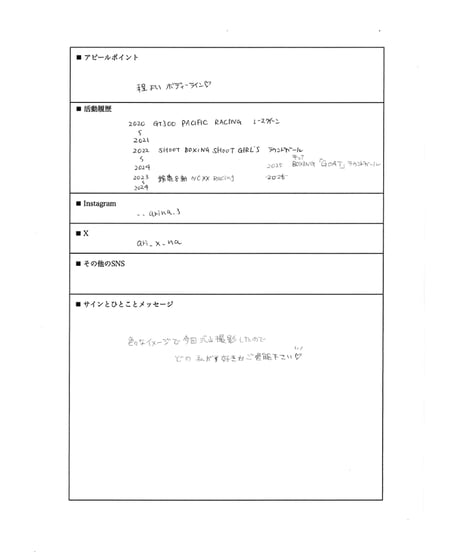 ■ アピールポイント
程よい ボディーライン♡
■ 活動履歴
2020 GT300 PACIFIC RACING レースクイーン
2021
2022 SHOOT BOXING SHOOT GIRL'S ラウンドガール
2024 2025 BOXING 「GOAT」ラウンドガール
2023 自動 NCXX RACING 2025
2024
■ Instagram
■ X
ari_x_na
■ その他のSNS
■ サインとひとことメッセージ
色々なイメージで今回 撮影したので
どの私が好きかご堪能下さい♡